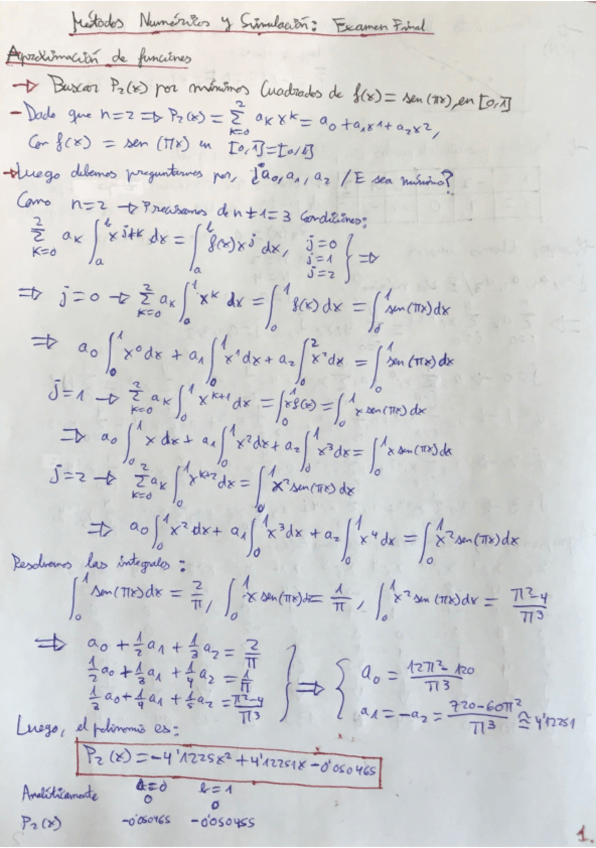 Métodos Numéricos y Simulación: Examen Final
Aproximación de funciones
→ Buscar P₂(x) por mínimos Cuadrados de f(x) = sen(πx), en [0,1]
- Dado que n=2 ⇒ P₂(x) = ∑_{k=0}^{2} aₖ xᵏ = a₀ + a₁x¹ + a₂x²,
Con f(x) = sen(πx) en [0,1]=[0,1]
→ Luego debemos preguntarnos por, ¿a₀, a₁, a₂ / E sea mínimo?
Como n=2 → Precisamos de n+1=3 Condiciones:
∑_{k=0}^{2} aₖ ∫_a^b x^{j+k} dx = ∫_a^b f(x) x^j dx, j=0 j=1 j=2 } ⇒
⇒ j=0 → ∑_{k=0}^{2} aₖ ∫_0^1 xᵏ dx = ∫_0^1 f(x) dx = ∫_0^1 sen(πx) dx
⇒ a₀ ∫_0^1 x⁰ dx + a₁ ∫_0^1 x¹ dx + a₂ ∫_0^2 x² dx = ∫_0^1 sen(πx) dx
j=1 → ∑_{k=0}^{2} aₖ ∫_0^1 x^{k+1} dx = ∫_0^1 x f(x) = ∫_0^1 x sen(πx) dx
⇒ a₀ ∫_0^1 x dx + a₁ ∫_0^1 x² dx + a₂ ∫_0^1 x³ dx = ∫_0^1 x sen(πx) dx
j=2 → ∑_{k=0}^{2} aₖ ∫_0^1 x^{k+2} dx = ∫_0^1 x² sen(πx) dx
⇒ a₀ ∫_0^1 x² dx + a₁ ∫_0^1 x³ dx + a₂ ∫_0^1 x⁴ dx = ∫_0^1 x² sen(πx) dx
Resolvamos las integrales:
∫_0^1 sen(πx) dx = 2/π, ∫_0^1 x sen(πx) dx = 1/π, ∫_0^1 x² sen(πx) dx = (π²-4)/π³
⇒ a₀ + 1/2 a₁ + 1/3 a₂ = 2/π
1/2 a₀ + 1/3 a₁ + 1/4 a₂ = 1/π
1/3 a₀ + 1/4 a₁ + 1/5 a₂ = (π²-4)/π³
} ⇒ { a₀ = (12π²-120)/π³
a₁ = -a₂ = (720-60π²)/π³ ≅ 4'12251
Luego, el polinomio es:
P₂(x) = -4'1225x² + 4'12251x - 0'050465
Analíticamente
0 0
P₂(x) -0'050465 -0'050455
1.